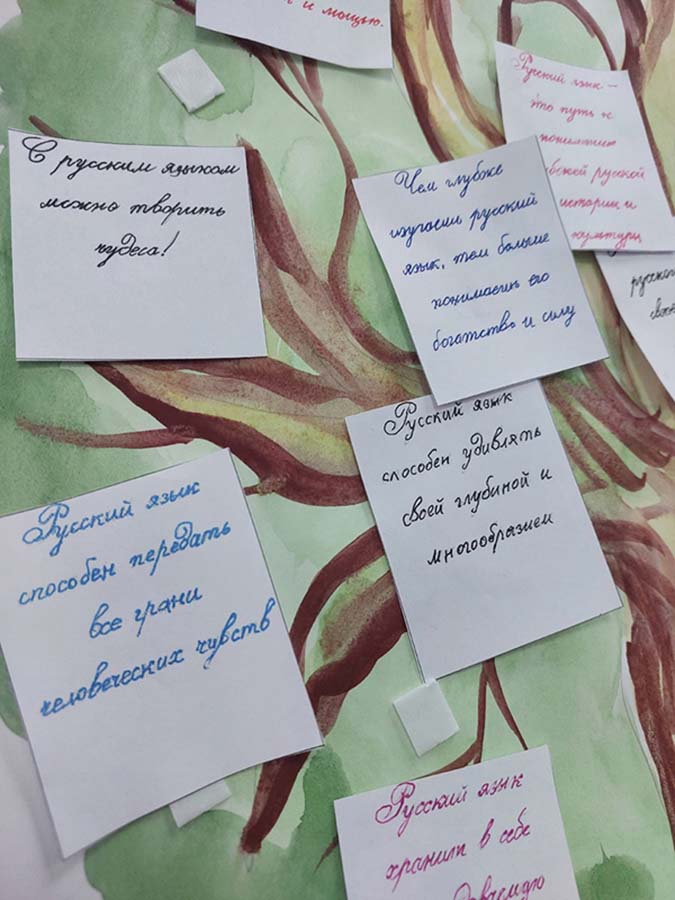 и мощью.
Русский язык –
это путь к
пониманию
русской
истории и
культуры
С русским языком
можно творить
чудеса!
Чем глубже
изучаешь русский
язык, тем больше
понимаешь его
богатство и силу
Русский язык
способен удивлять
своей глубиной и
многообразием
Русский язык
способен передать
все грани
человеческих чувств
Русский язык
хранит в себе